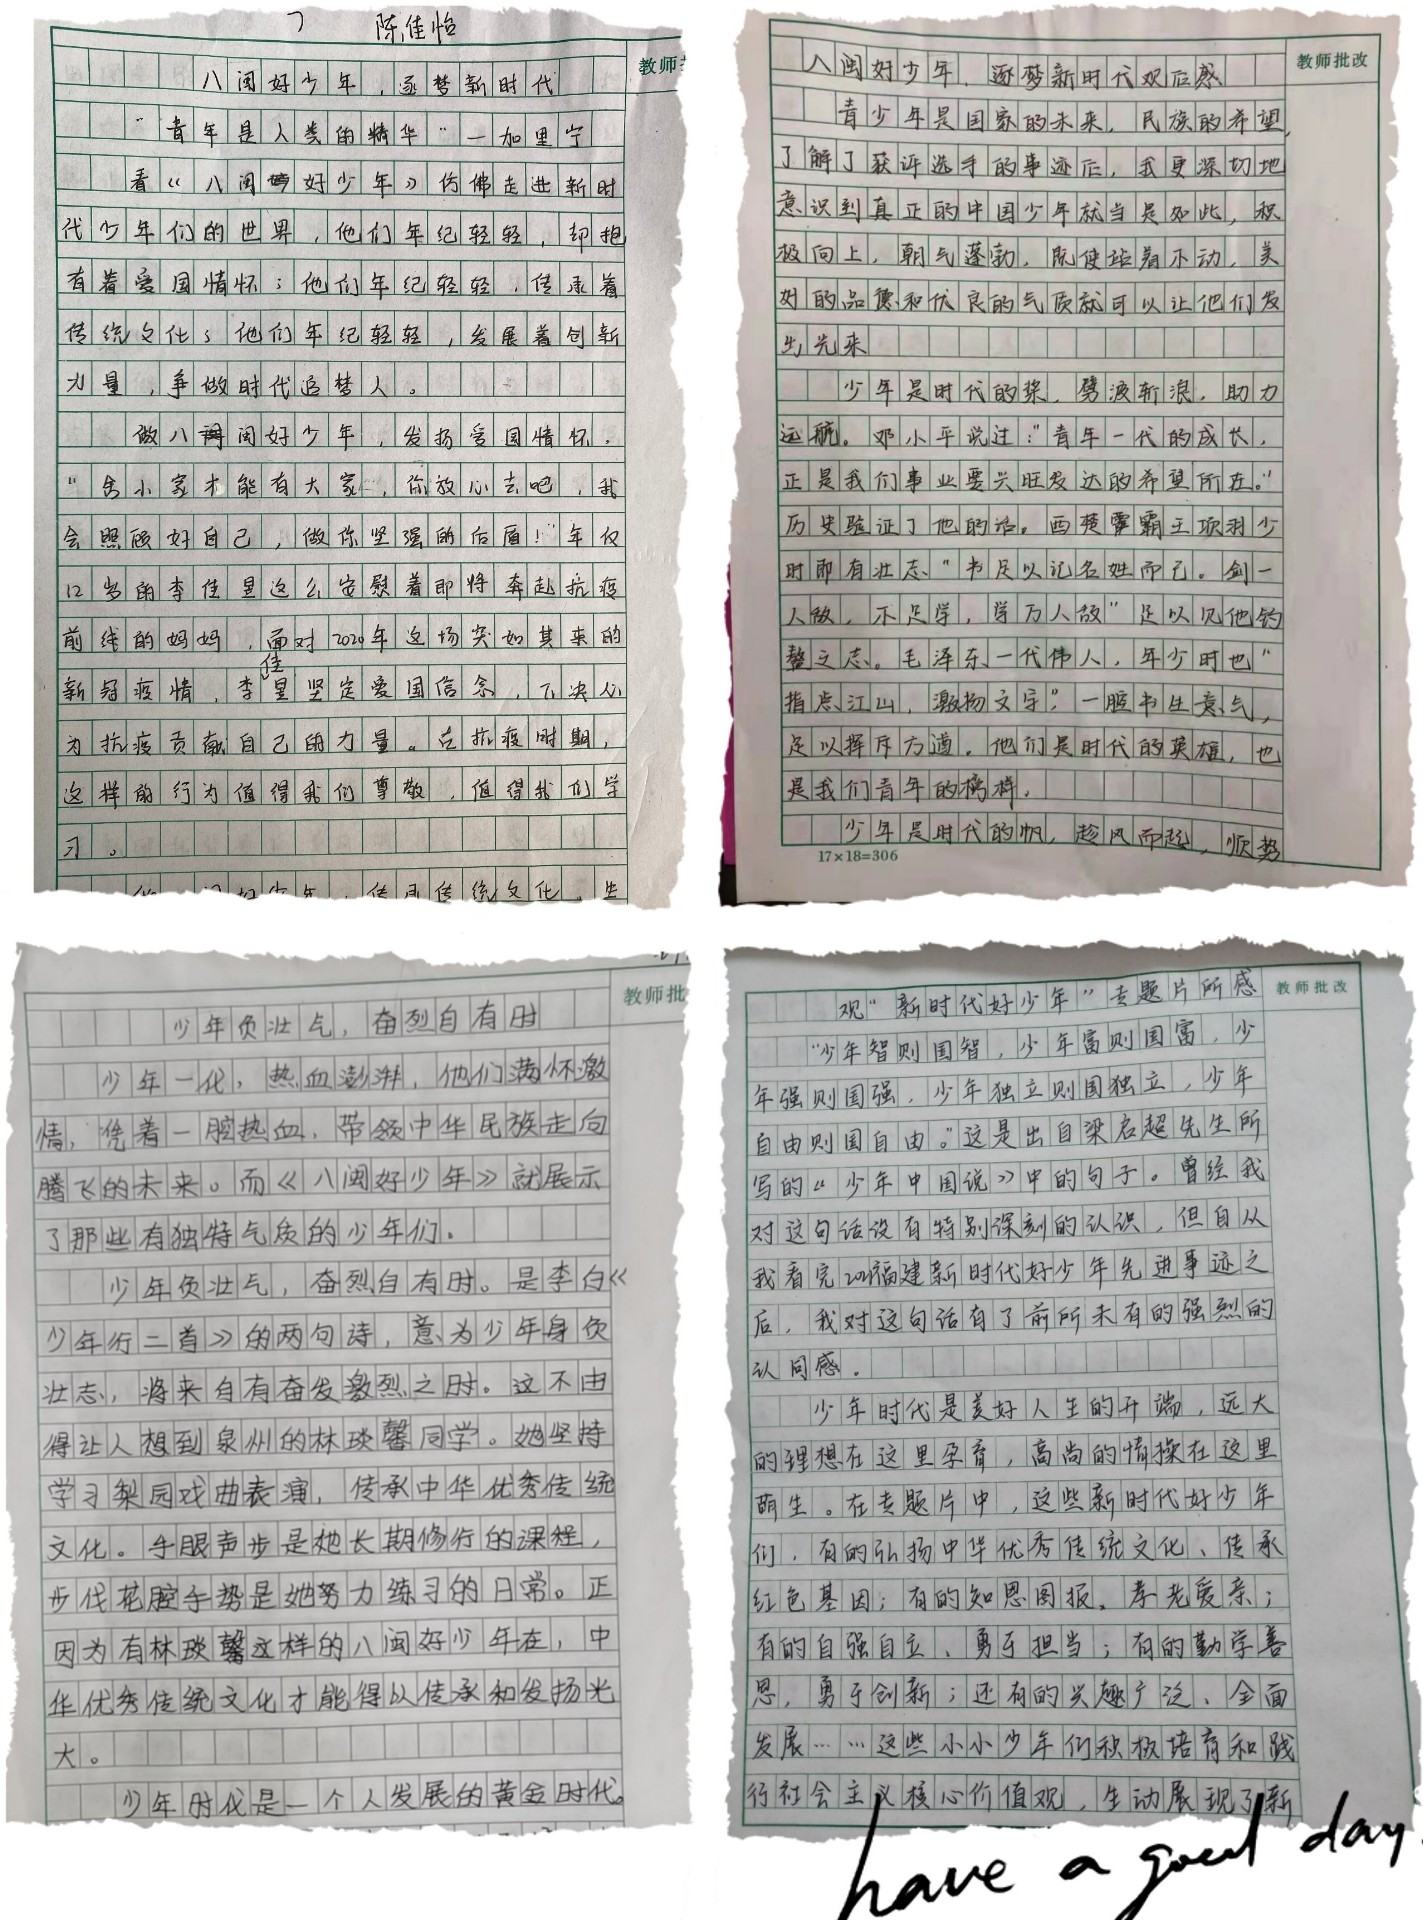 陈佳怡
教师
八闽好少年，逐梦新时代
“青年是人类的精华”一加里宁
看《八闽好少年》仿佛走进新时
代少年们的世界，他们年纪轻轻，却抱
有着爱国情怀；他们年纪轻轻，传承着
传统文化；他们年纪轻轻，发展着创新
力量，争做时代追梦人。
做八闽好少年，发扬爱国情怀。
“舍小家才能有大家，你放心去吧，我
会照顾好自己，做你坚强的后盾！”年仅
12岁的李佳星这么安慰着即将奔赴抗疫
前线的妈妈，面对2020年这场突如其来的
新冠疫情，李佳星坚定爱国信念，下决心
为抗疫贡献自己的力量。在抗疫时期，
这样的行为值得我们尊敬，值得我们学
习。
好少年，传统文化。生
教师批改
八闽好少年，逐梦新时代观后感
青少年是国家的未来，民族的希望，
了解了获评选手的事迹后，我更深切地
意识到真正的中国少年就当是如此，积
极向上，朝气蓬勃，既使站着不动，美
好的品德和优良的气质就可以让他们发
出光来
少年是时代的桨，劈波斩浪，助力
远航。邓小平说过：“青年一代的成长，
正是我们事业要兴旺发达的希望所在。”
历史验证了他的话。西楚霸王项羽少
时即有壮志“书足以记名姓而已。剑一
人敌，不足学，学万人敌”足以见他钓
鳌之志。毛泽东一代伟人，年少时也“
指点江山，激扬文字”，一腔书生意气，
足以挥斥方遒。他们是时代的英雄，也
是我们青年的榜样。
少年是时代的帆，趁风而起，顺势
17×18=306
教师批
少年负壮气，奋烈自有时
少年一代，热血澎湃，他们满怀激
情，凭着一腔热血，带领中华民族走向
腾飞的未来。而《八闽好少年》就展示
了那些有独特气质的少年们。
少年负壮气，奋烈自有时。是李白《
少年行二首》的两句诗，意为少年身负
壮志，将来自有奋发激烈之时。这不由
得让人想到泉州的林琰馨同学。她坚持
学习梨园戏曲表演，传承中华优秀传统
文化。手眼声步是她长期修行的课程，
步伐花腔手势是她努力练习的日常。正
因为有林琰馨这样的八闽好少年在，中
华优秀传统文化才能得以传承和发扬光
大。
少年时代是一个人发展的黄金时代。
教师批改
观“新时代好少年”专题片所感
“少年智则国智，少年富则国富，少
年强则国强，少年独立则国独立，少年
自由则国自由。”这是出自梁启超先生所
写的《少年中国说》中的句子。曾经我
对这句话没有特别深刻的认识，但自从
我看完2021福建新时代好少年先进事迹之
后，我对这句话有了前所未有的强烈的
认同感。
少年时代是美好人生的开端，远大
的理想在这里孕育，高尚的情操在这里
萌生。在专题片中，这些新时代好少年
们，有的弘扬中华优秀传统文化、传承
红色基因；有的知恩图报、孝老爱亲；
有的自强自立、勇于担当；有的勤学善
思，勇于创新；还有的兴趣广泛、全面
发展……这些小小少年们积极培育和践
行社会主义核心价值观，生动展现了新
have a good day.